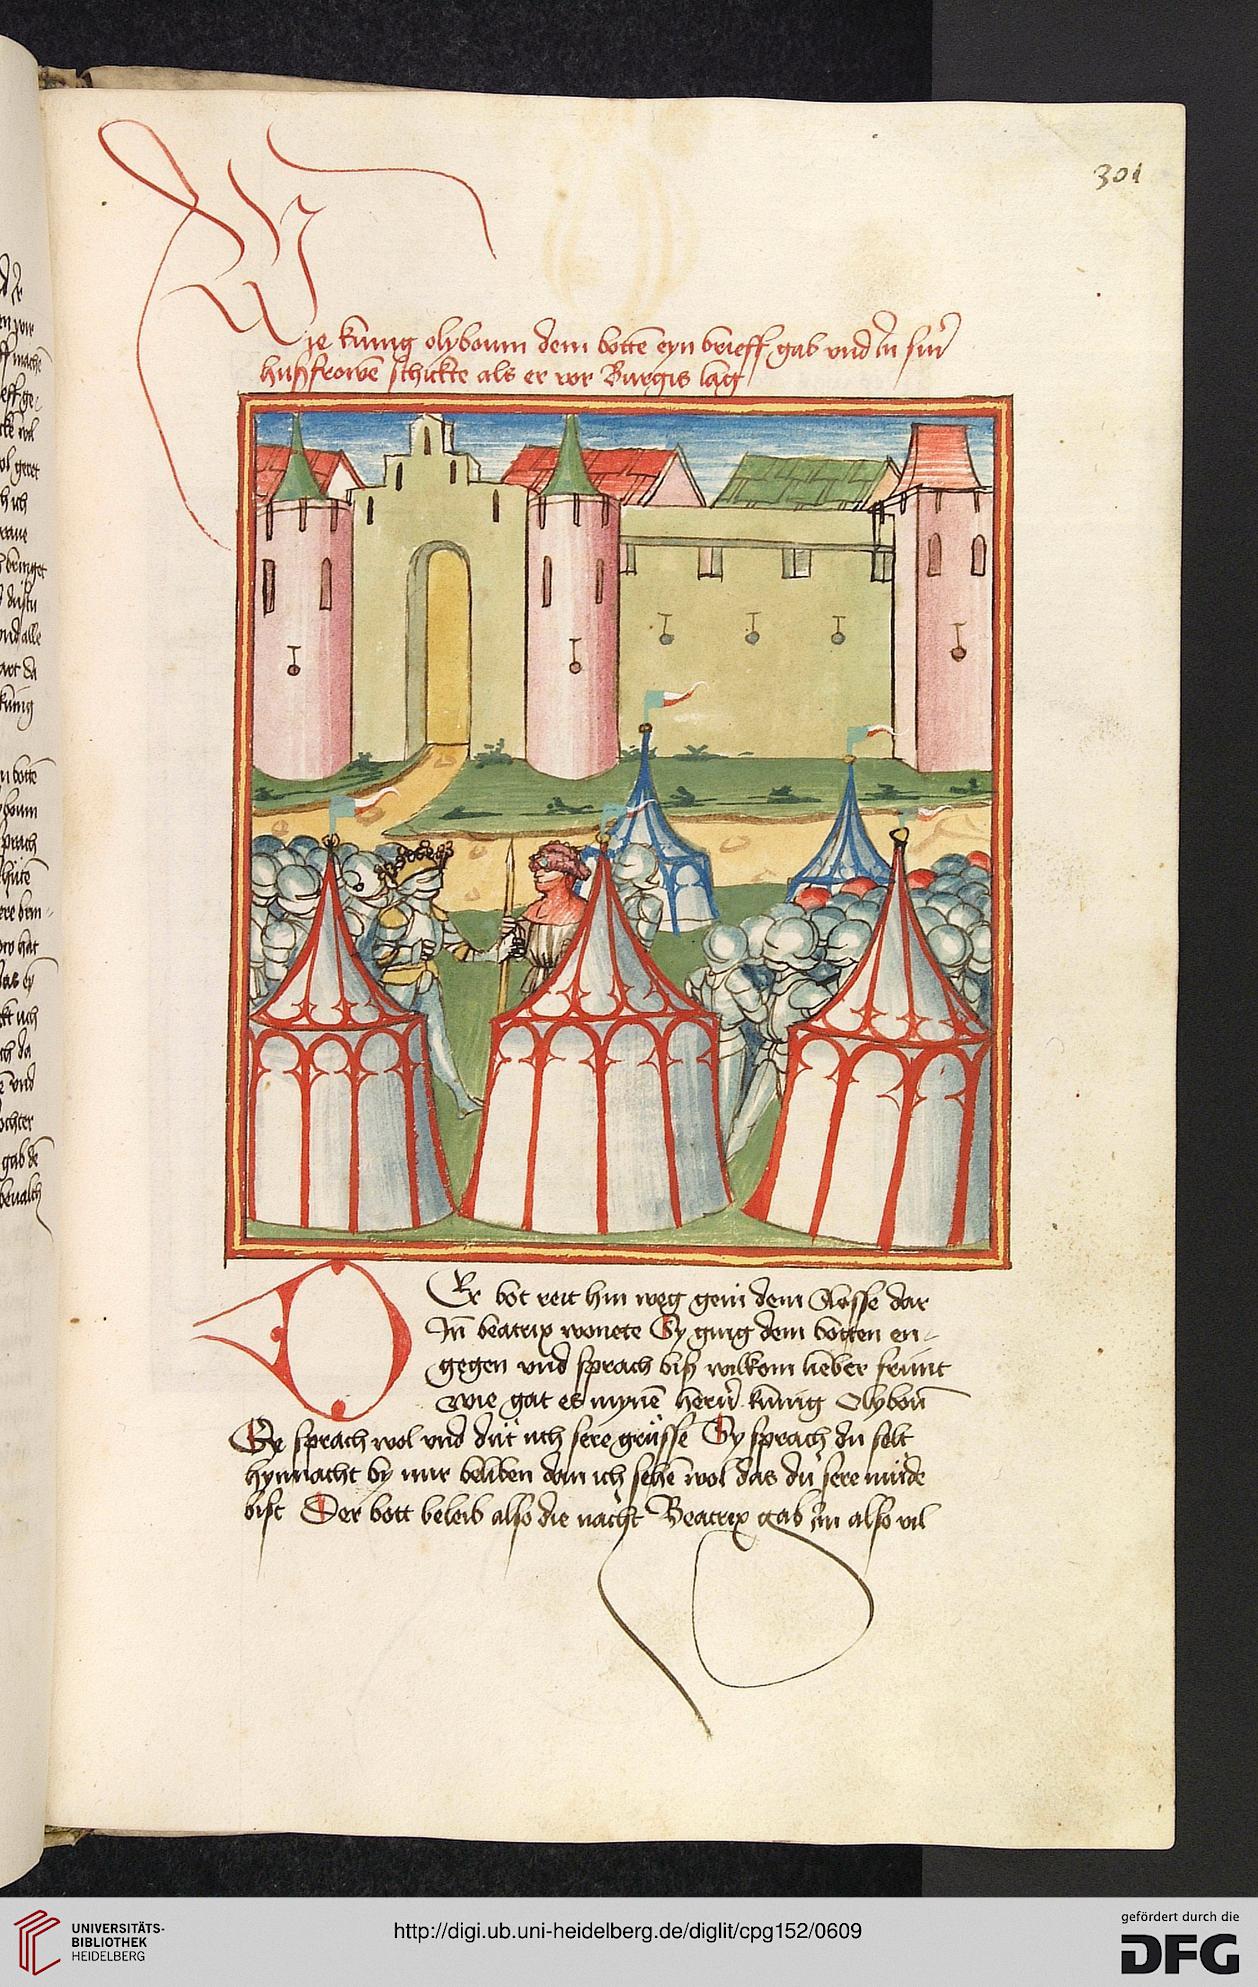 301
Wie kunig olyboum dem botte͂ eyn brieff gab vnd in siner
hußfrowe͂ schickte als er vor Burgis lag
Der bot reit hin weg gein dem Slosse dar
In beatrix wonete Sy ging dem botten en-
gegen vnd sprach biß wilkom lieber frunt
wie gat es myne͂ hern kunig Olyboum
Er sprach wol vnd dut uch sere grussen Sy sprach du solt
hynnacht by mir bliben dan ich sehe͂ wol das du sere mude
bist Der bott beleib also die nacht Beatrix gab im also vil
UNIVERSITÄTS-
BIBLIOTHEK
HEIDELBERG
http://digi.ub.uni-heidelberg.de/diglit/cpg152/0609
gefördert durch die
DFG